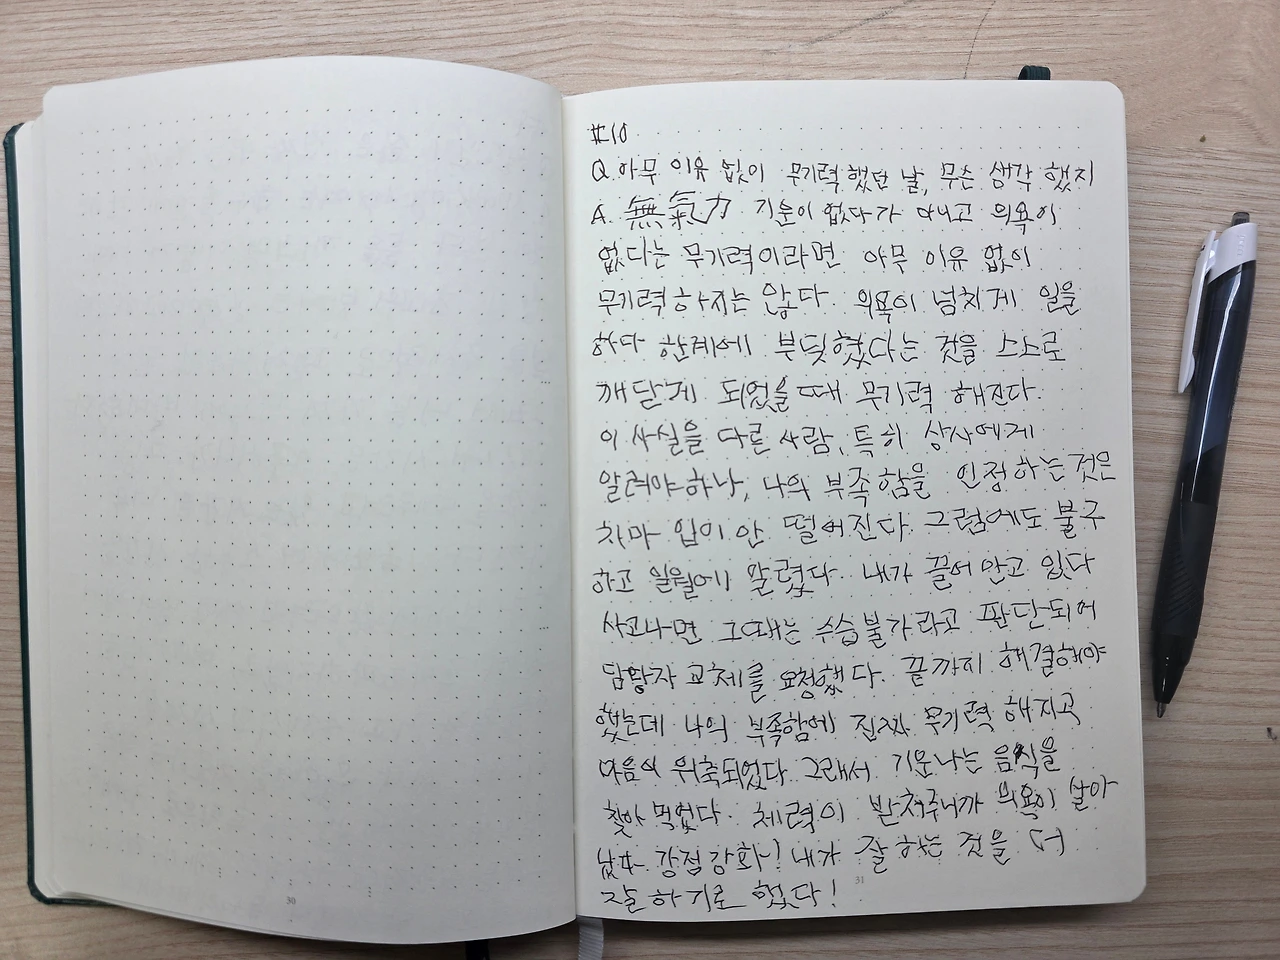 #10
Q. 아무 이유 없이 무기력했던 날, 무슨 생각 했지
A. 無氣力 기운이 없다가 아니고 의욕이
없다는 무기력이라면 아무 이유 없이
무기력하지는 않다. 의욕이 넘치게 일을
하다 한계에 부딪혔다는 것을 스스로
깨닫게 되었을 때 무기력 해진다.
이 사실을 다른 사람, 특히 상사에게
알려야하나, 나의 부족함을 인정하는 것은
차마 입이 안 떨어진다. 그럼에도 불구
하고 일월에 말렸다. 내가 끌어 안고 있다
사고나면 그때는 수습불가라고 판단되어
담당자 교체를 요청했다. 끝까지 해결해야
했는데 나의 부족함에 진짜 무기력 해지고
마음이 위축되었다. 그래서 기운나는 음식을
찾아 먹었다. 체력이 받쳐주니까 의욕이 살아
났다. 강점강화! 내가 잘 하는 것을 더
잘하기로 했다!
30
31